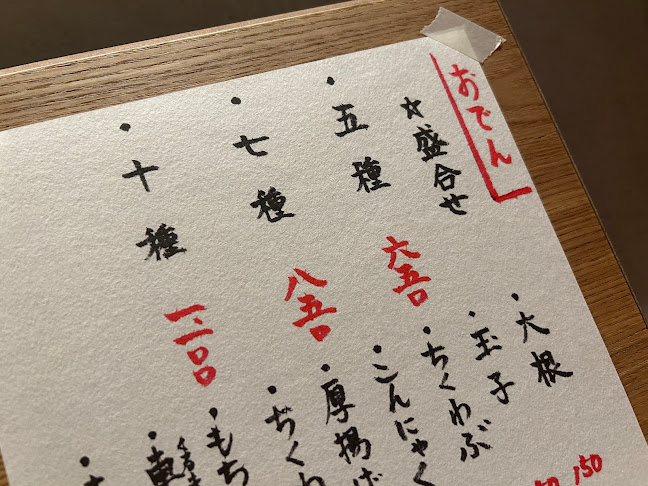 おでん
☆盛合せ
・五種 六五〇
・七種 八五〇
・十種 一、一〇〇
・大根
・玉子
・ちくわぶ
・こんにゃく
・厚揚げ
・ちくわ
・もち
150